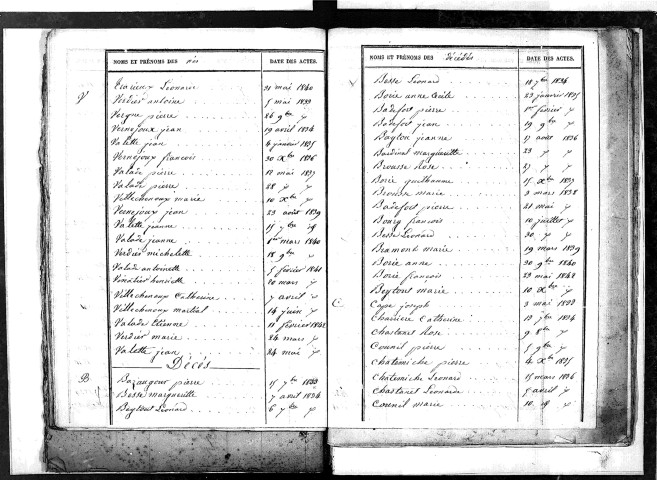 NOMS ET PRÉNOMS DES nés DATE DES ACTES.
Leonard 31 mai 1840
V Verdier antoine 5 mai 1833
Vergne pierre 26 9bre "
Vernejoux jean 19 avril 1834
Valette jean 4 janvier 1835
Vernejoux francois 30 Xbre 1836
Valade pierre 12 mai 1837
Valade pierre 28 " "
Villechenoux marie 10 Xbre "
Vernejoux jean 23 août 1839
Valette jeanne 15 7bre "
Valade jeanne 1er mars 1840
Verdier michelette 18 9bre "
Valade antoinette 5 février 1841
henriette 20 mars "
Villechenoux Catherine 7 avril "
Villechenoux martial 14 juin "
Valade Etienne 11 février 1842
Verdier marie 24 mars "
Valette jean 24 mai "
Décés
B Bazaugour pierre 15 7bre 1833
Besse marguerite 7 avril 1834
Beytout Léonard 6 7bre "
NOMS ET PRÉNOMS DES décédés DATE DES ACTES.
Besse Léonard 18 7bre 1834
Borie anne Cécile 23 janvier 1835
Badefort pierre 1er février "
Badefort jean 19 9bre "
Baylon jeanne 17 août 1836
Bardinal marguerite 23 " "
Brousse Rose 27 " "
Borie guilhaume 15 Xbre 1837
Brousse marie 3 mars 1838
Badefort pierre 21 mai "
Bourg francois 10 juillet "
Besse Léonard 30 " "
Bramont marie 19 mars 1839
Borie anne 30 9bre 1840
Borie francois 23 mai 1842
Beytout marie 10 Xbre "
C Cape joseph 3 mai 1833
Charrière Catherine 13 7bre 1834
Chastanet Rose 9 8bre "
Couneil pierre 5 9bre "
Chateniche pierre 4 Xbre 1835
Chateniche Léonard 15 mars 1836
Chastanet Léonarde 5 avril "
Couneil marie 10 "